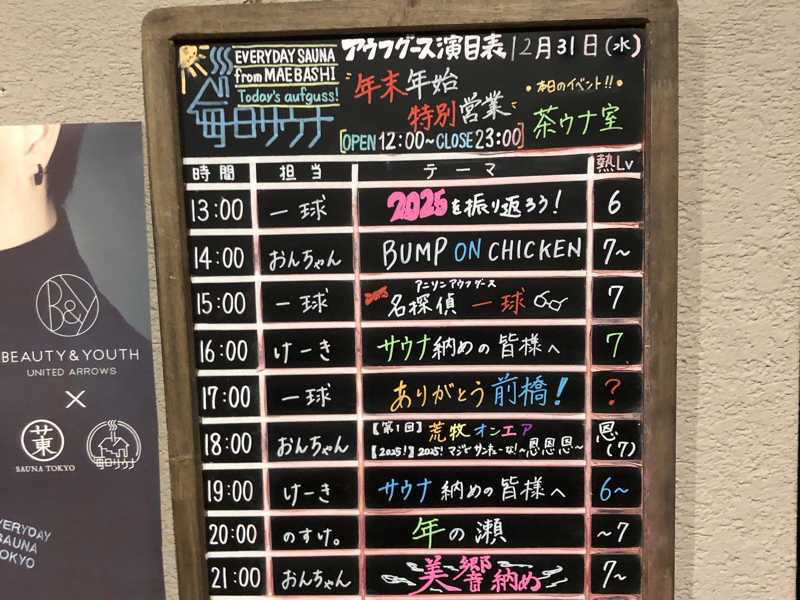 EVERYDAY SAUNA
from MAEBASHI
Today's aufguss!
毎日サウナ
アウフグース演目表 12月31日(水)
年末年始
特別営業
OPEN 12:00~CLOSE 23:00
本日のイベント!!
茶ウナ室
時間 担当 テーマ 熱Lv
13:00 一球 2025を振り返ろう! 6
14:00 おんちゃん BUMP ON CHICKEN 7~
アニソンアウフグース
15:00 一球 2025 名探偵 一球 7
16:00 けーき サウナ納めの皆様へ 7
17:00 一球 ありがとう前橋! ?
18:00 おんちゃん 【第1回】荒牧オンエア 恩(7)
【2025!】2025!マジーサンキューな!~恩恩恩~
19:00 けーき サウナ納めの皆様へ 6~
20:00 のすけ。 年の瀬 ~7
21:00 おんちゃん 美響納め 7~
B&Y
BEAUTY & YOUTH
UNITED ARROWS
×
SAUNA TOKYO
毎日サウナ
EVERYDAY
SAUNA
TOKYO